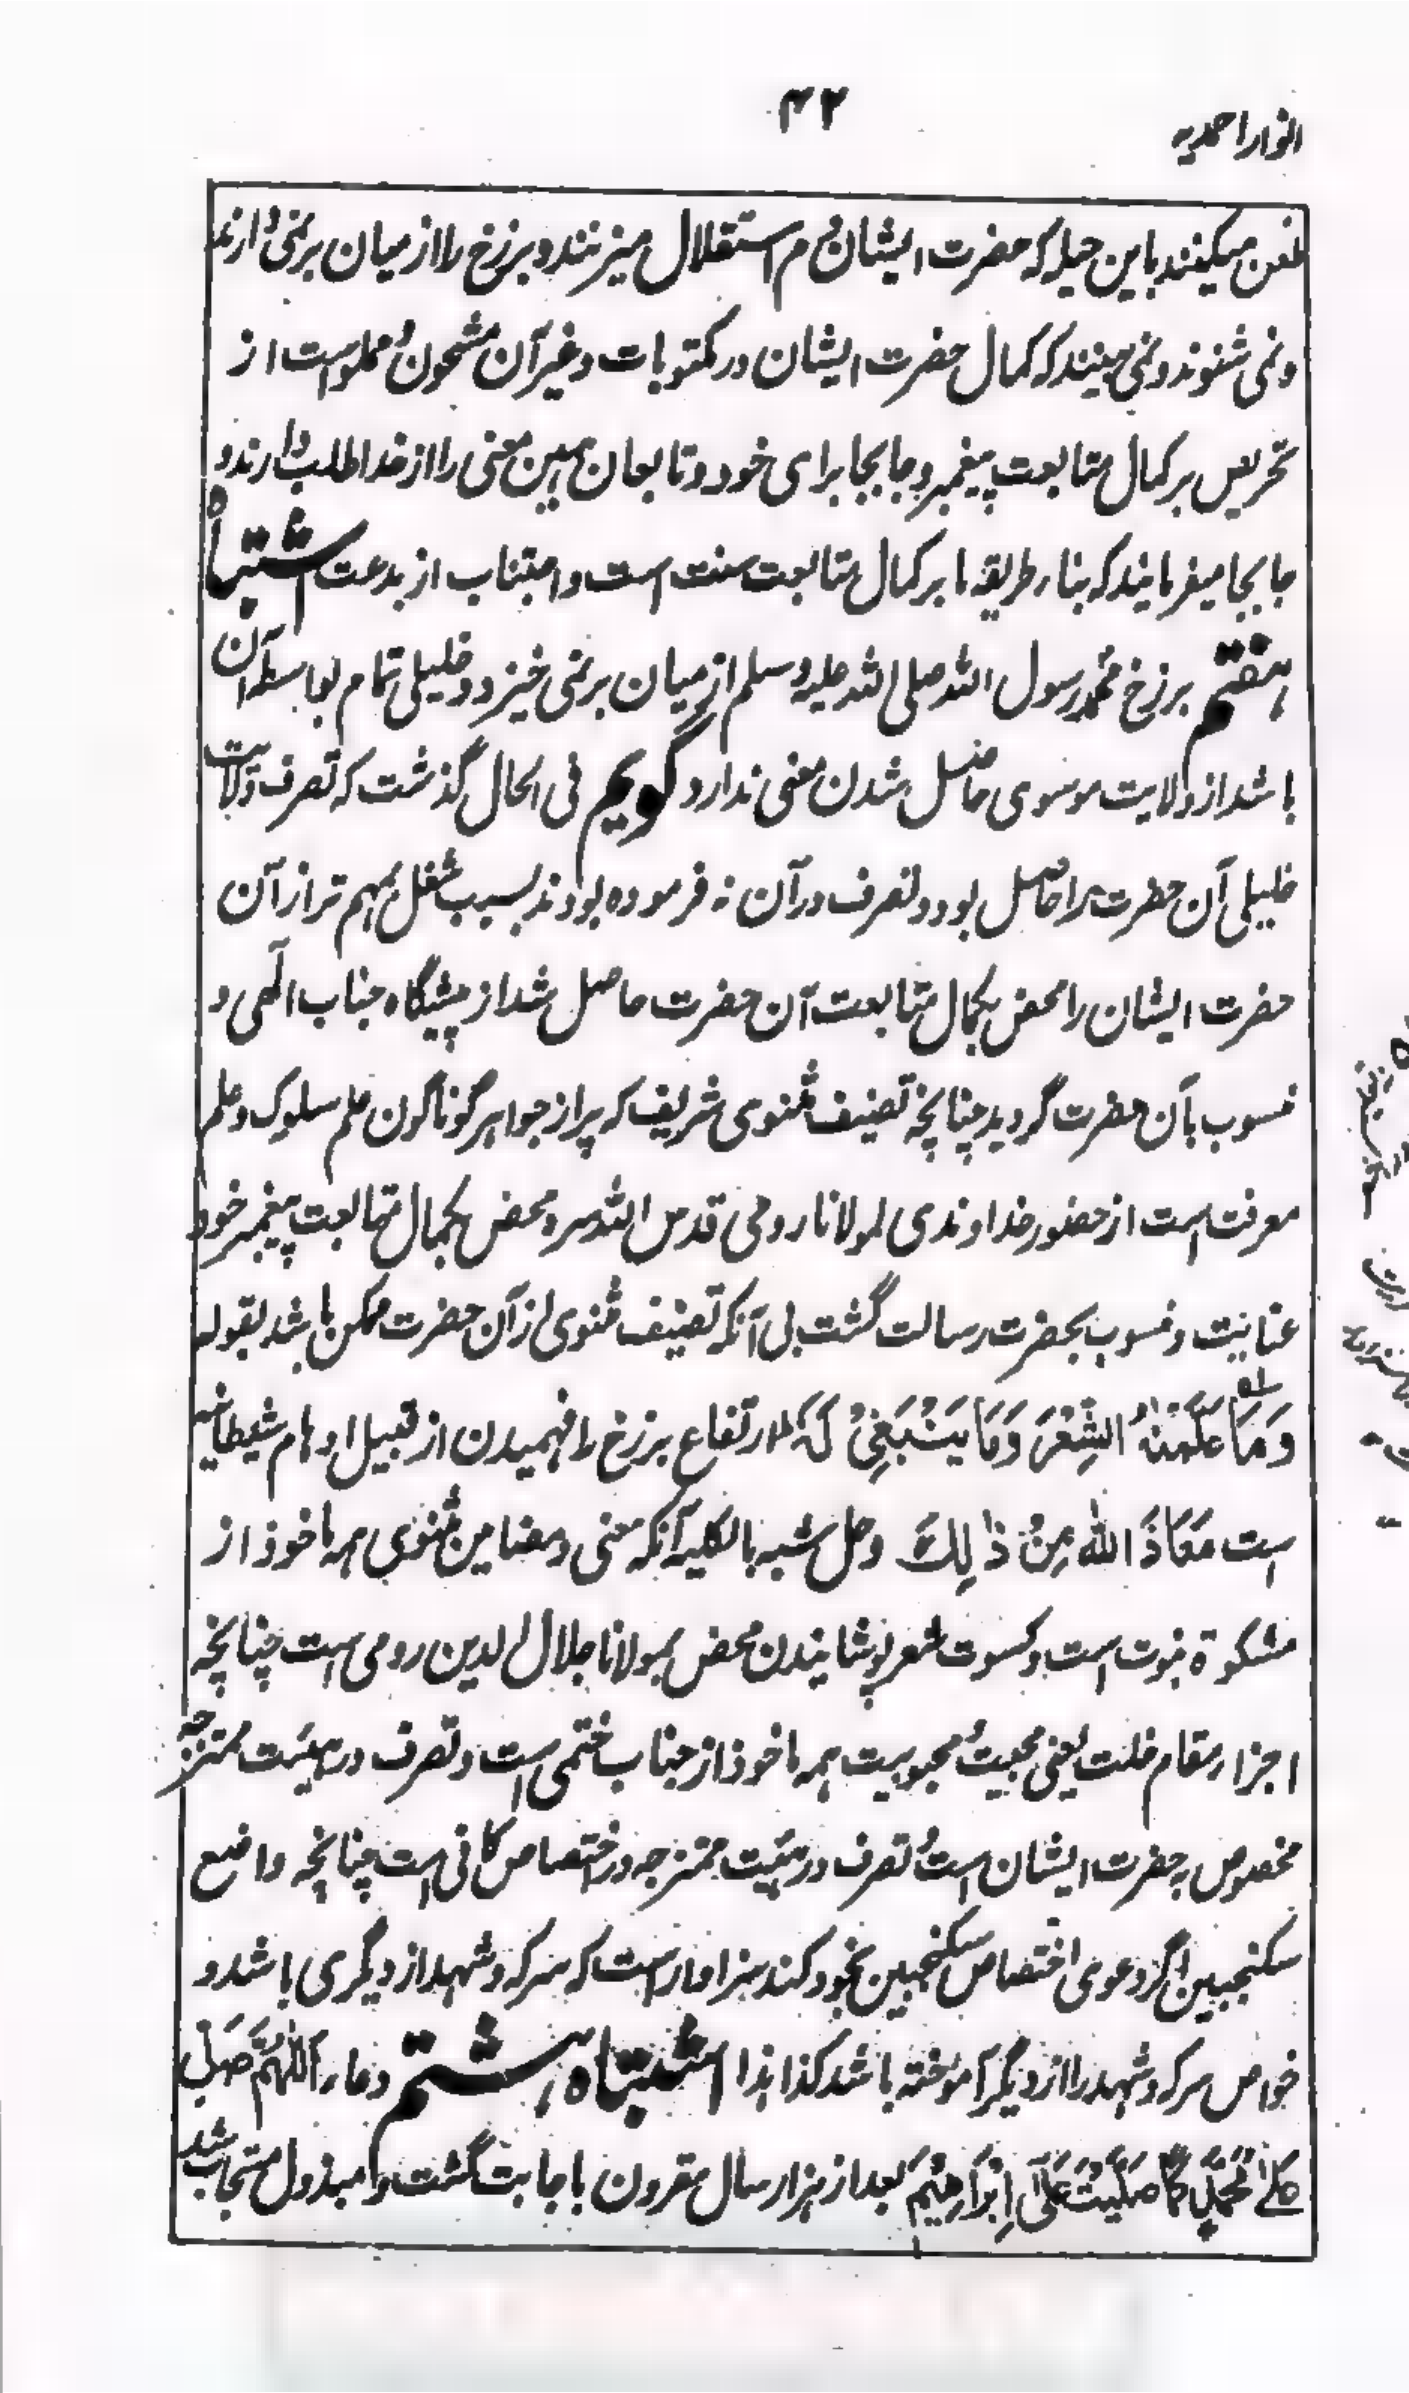 انوار احمدیه
۴۲
طعن میکنند باین حیله که حضرت ایشان دم استقلال میزنند و برزخ را از میان بر نمی دارند
و نمی شنوند و نمی بینند که کمال حضرت ایشان در مکتوبات و غیر آن مشحون و مملو است از
تحریص بر کمال متابعت پیغمبر و جابجا برای خود و تابعان همین معنی را از خدا طلب دارند و
جابجا میفرمایند که بناء طریقه ما بر کمال متابعت سنت است و اجتناب از بدعت اشتباه
هفتم برزخ محمد رسول الله صلی الله علیه وسلم از میان بر نمی خیزد و خلیلی تمام بواسطه آن
باشد از ولایت موسوی حاصل شدن معنی ندارد گویم فی الحال گذشت که تصرف ولایت
خلیلی آن حضرت را حاصل بود و تصرف در آن نه فرموده بودند بسبب شغل مهم تر از آن
حضرت ایشان را محض بکمال متابعت آن حضرت حاصل شد از پیشگاه جناب الهی و
منسوب بآن حضرت گردید چنانچه تصنیف مثنوی شریف که پر از جواهر گوناگون علم سلوک و علم
معرفت است از حضور خداوندی لمولانا رومی قدس الله سره محض بکمال متابعت پیغمبر خود
عنایت و منسوب بحضرت رسالت گشت بی آنکه تصنیف مثنوی از آن حضرت ممکن باشد بقوله
وَمَا عَلَّمْنٰهُ الشِّعْرَ وَمَا يَنْۢبَغِيْ لَهٗ ارتفاع برزخ را فهمیدن از قبیل اوهام شیطانیه
است مَعَاذَ الله مِنْ ذٰلِكَ وحل شبه بالکلیه آنکه معنی و مضامین مثنوی همه ماخوذ از
مشکوة نبوت است و کسوت شعر پوشانیدن محض بمولانا جلال الدین رومی است چنانچه
اجزاء مقام خلت یعنی محبیت و محبوبیت همه ماخوذ از جناب ختمی است و تصرف در هیئت ممتزجه
مخصوص بحضرت ایشان است و تصرف در هیئت ممتزجه در اختصاص کافی است چنانچه واضع
سکنجبین اگر دعوی اختصاص سکنجبین بخود کند سزاوار است که سرکه و شهد از دیگری باشد و
خواص سرکه و شهد را از دیگر آموخته باشد کذا هذا اشتباه هشتم دعاء اَللّٰهُمَّ صَلِّ
عَلٰى مُحَمَّدٍ كَمَا صَلَّيْتَ عَلٰٓى اِبْرَاهِيْمَ بعد از هزار سال مقرون باجابت گشت و مبذول مستجاب شد